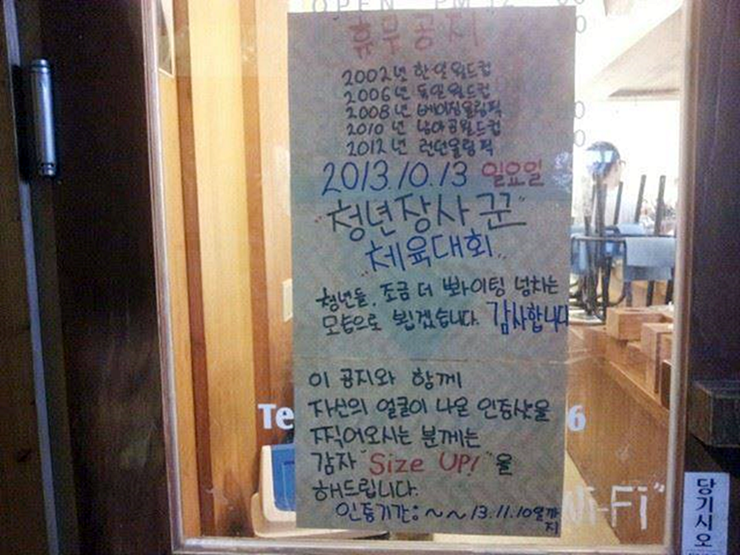 OPEN PM 12
휴무공지
2002년 한일월드컵
2006년 독일월드컵
2008년 베이징올림픽
2010년 남아공월드컵
2012년 런던올림픽
2013.10.13 일요일
"청년장사꾼"
체육대회
청년들, 조금 더 뽜이팅 넘치는
모습으로 뵙겠습니다. 감사합니다
이 공지와 함께
자신의 얼굴이 나온 인증샷을
찍어오시는 분께는
감자 "Size UP!"을
해드립니다.
인증기간: ~~13.11.10일까지
Te 6
Wi-Fi"
당기시오